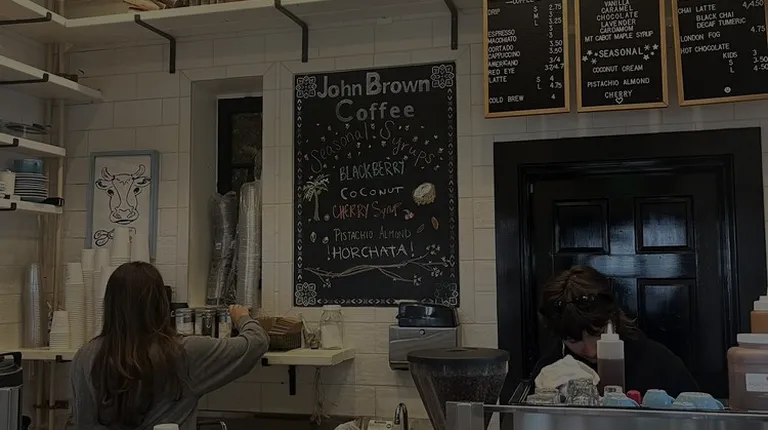 John Brown
Coffee
Seasonal Syrups
BLACKBERRY
COCONUT
CHERRY Syrup
PISTACHIO ALMOND
!HORCHATA!
COFFEE
DRIP S 2.75
M
L
ESPRESSO
MACCHIATO 3.50
CORTADO
CAPPUCCINO
AMERICANO
RED EYE
LATTE S 4
L 4.75
COLD BREW 4
VANILLA
CARAMEL
CHOCOLATE
LAVENDER
CARDAMOM
MT CABOT MAPLE SYRUP
SEASONAL
COCONUT CREAM
PISTACHIO ALMOND
CHERRY
CHAI LATTE S
L
BLACK CHAI
DECAF TURMERIC
LONDON FOG
HOT CHOCOLATE
KIDS 3
S
L 4.50